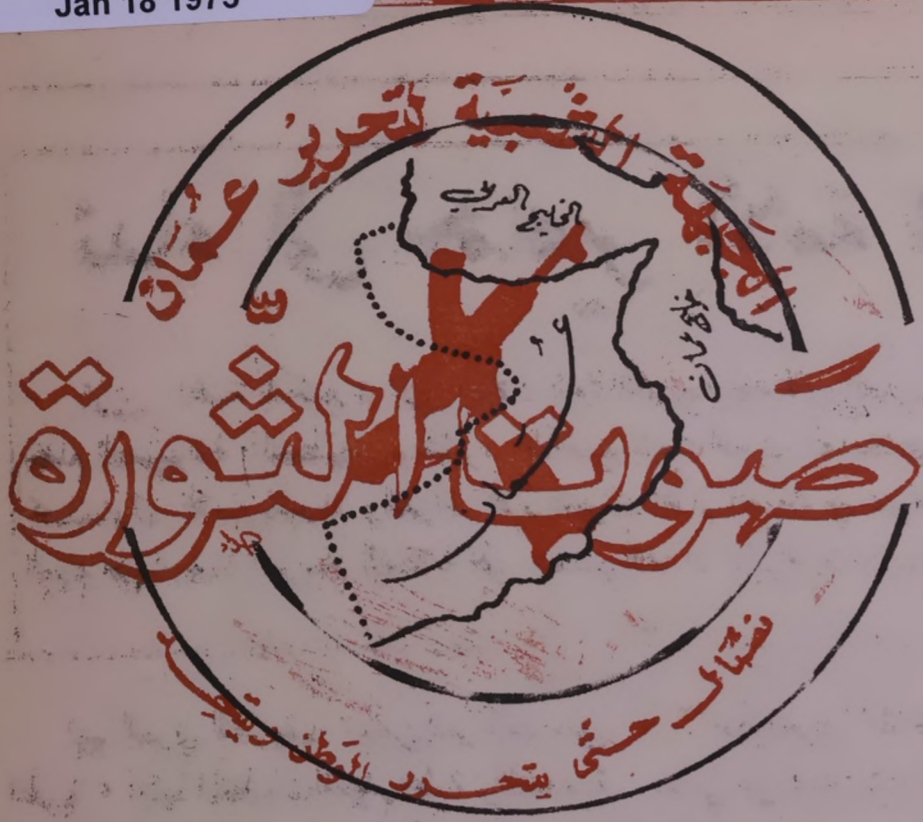 Jan 18 1975
الجبهة الشعبية لتحرير عُمان
الخليج العربي
خليج عمان
صَوت الثَّورة
نضال حتى يتحرر الوطن